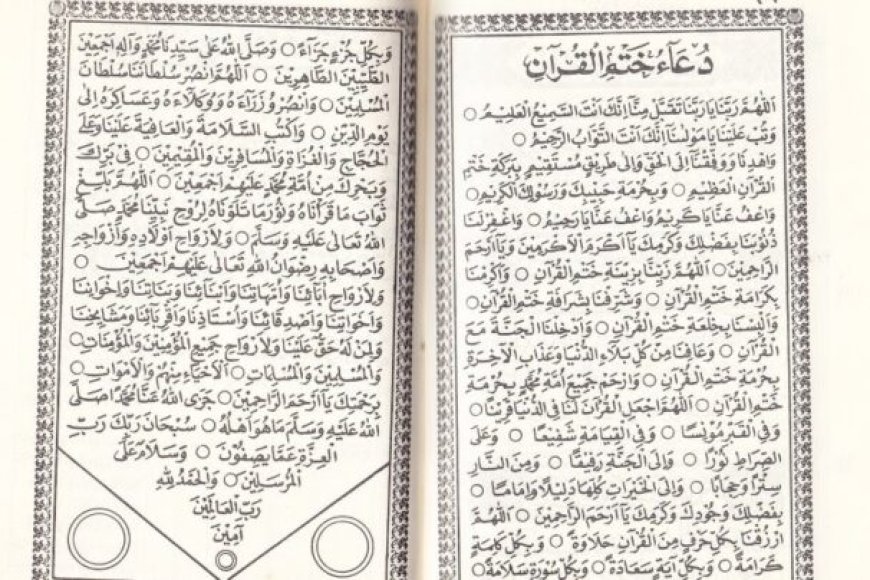 دُعَاءُ خَتْمِ الْقُرْآنِ
اَللّٰهُمَّ رَبَّنَا يَا رَبَّنَا تَقَبَّلْ مِنَّا اِنَّكَ اَنْتَ السَّمِيعُ الْعَلِيمُ ۝
وَتُبْ عَلَيْنَا يَا مَوْلٰينَا اِنَّكَ اَنْتَ التَّوَّابُ الرَّحِيمُ ۝
وَاهْدِنَا وَوَفِّقْنَا اِلَى الْحَقِّ وَاِلٰى طَرِيقٍ مُسْتَقِيمٍ بِبَرَكَةِ خَتْمِ
الْقُرْآنِ الْعَظِيمِ ۝ وَبِحُرْمَةِ حَبِيبِكَ وَرَسُولِكَ الْكَرِيمِ ۝
وَاعْفُ عَنَّا يَا كَرِيمُ وَاعْفُ عَنَّا يَا رَحِيمُ ۝ وَاغْفِرْ لَنَا
ذُنُوبَنَا بِفَضْلِكَ وَكَرَمِكَ يَا اَكْرَمَ الْاَكْرَمِينَ وَيَا اَرْحَمَ
الرَّاحِمِينَ ۝ اَللّٰهُمَّ زَيِّنَّا بِزِينَةِ خَتْمِ الْقُرْآنِ ۝ وَاَكْرِمْنَا
بِكَرَامَةِ خَتْمِ الْقُرْآنِ ۝ وَشَرِّفْنَا بِشَرَافَةِ خَتْمِ الْقُرْآنِ ۝
وَاَلْبِسْنَا بِخِلْعَةِ خَتْمِ الْقُرْآنِ ۝ وَاَدْخِلْنَا الْجَنَّةَ مَعَ
الْقُرْآنِ ۝ وَعَافِنَا مِنْ كُلِّ بَلَاءِ الدُّنْيَا وَعَذَابِ الْاٰخِرَةِ
بِحُرْمَةِ خَتْمِ الْقُرْآنِ ۝ وَارْحَمْ جَمِيعَ اُمَّةِ مُحَمَّدٍ بِحُرْمَةِ
خَتْمِ الْقُرْآنِ ۝ اَللّٰهُمَّ اجْعَلِ الْقُرْآنَ لَنَا فِي الدُّنْيَا قَرِينًا ۝
وَفِي الْقَبْرِ مُونِسًا ۝ وَفِي الْقِيَامَةِ شَفِيعًا ۝ وَعَلَى
الصِّرَاطِ نُورًا ۝ وَاِلَى الْجَنَّةِ رَفِيقًا ۝ وَمِنَ النَّارِ
سِتْرًا وَحِجَابًا ۝ وَاِلَى الْخَيْرَاتِ كُلِّهَا دَلِيلًا وَاِمَامًا ۝
بِفَضْلِكَ وَجُودِكَ وَكَرَمِكَ يَا اَرْحَمَ الرَّاحِمِينَ ۝ اَللّٰهُمَّ
ارْزُقْنَا بِكُلِّ حَرْفٍ مِنَ الْقُرْآنِ حَلَاوَةً ۝ وَبِكُلِّ كَلِمَةٍ
كَرَامَةً ۝ وَبِكُلِّ آيَةٍ سَعَادَةً ۝ وَبِكُلِّ سُورَةٍ سَلَامَةً ۝
وَبِكُلِّ جُزْءٍ جَزَاءً ۝ وَصَلَّى اللّٰهُ عَلٰى سَيِّدِنَا مُحَمَّدٍ وَاٰلِهِ اَجْمَعِينَ
الطَّيِّبِينَ الطَّاهِرِينَ ۝ اَللّٰهُمَّ انْصُرْ سُلْطَانَنَا سُلْطَانَ
الْمُسْلِمِينَ ۝ وَانْصُرْ وُزَرَاءَهُ وَوُكَلَاءَهُ وَعَسَاكِرَهُ اِلٰى
يَوْمِ الدِّينِ ۝ وَاكْتُبِ السَّلَامَةَ وَالْعَافِيَةَ عَلَيْنَا وَعَلَى
الْحُجَّاجِ وَالْغُزَاةِ وَالْمُسَافِرِينَ وَالْمُقِيمِينَ ۝ فِي بَرِّكَ
وَبَحْرِكَ مِنْ اُمَّةِ مُحَمَّدٍ عَلَيْهِمْ اَجْمَعِينَ ۝ اَللّٰهُمَّ بَلِّغْ
ثَوَابَ مَا قَرَأْنَاهُ وَنُورَ مَا تَلَوْنَاهُ لِرُوحِ نَبِيِّنَا مُحَمَّدٍ صَلَّى
اللّٰهُ تَعَالٰى عَلَيْهِ وَسَلَّمَ ۝ وَلِاَرْوَاحِ اَوْلَادِهِ وَاَزْوَاجِهِ
وَاَصْحَابِهِ رِضْوَانُ اللّٰهِ تَعَالٰى عَلَيْهِمْ اَجْمَعِينَ ۝
وَلِاَرْوَاحِ اٰبَائِنَا وَاُمَّهَاتِنَا وَاَبْنَائِنَا وَبَنَاتِنَا وَاِخْوَانِنَا
وَاَخَوَاتِنَا وَاَصْدِقَائِنَا وَاُسْتَاذِنَا وَاَقْرِبَائِنَا وَمَشَايِخِنَا
وَلِمَنْ لَهُ حَقٌّ عَلَيْنَا وَلِاَرْوَاحِ جَمِيعِ الْمُؤْمِنِينَ وَالْمُؤْمِنَاتِ ۝
وَالْمُسْلِمِينَ وَالْمُسْلِمَاتِ ۝ اَلْاَحْيَاءِ مِنْهُمْ وَالْاَمْوَاتِ ۝
بِرَحْمَتِكَ يَا اَرْحَمَ الرَّاحِمِينَ ۝ جَزَى اللّٰهُ عَنَّا مُحَمَّدًا صَلَّى
اللّٰهُ عَلَيْهِ وَسَلَّمَ مَا هُوَ اَهْلُهُ ۝ سُبْحَانَ رَبِّكَ رَبِّ
الْعِزَّةِ عَمَّا يَصِفُونَ ۝ وَسَلَامٌ عَلَى
الْمُرْسَلِينَ ۝ وَالْحَمْدُ لِلّٰهِ
رَبِّ الْعَالَمِينَ
اٰمِينَ